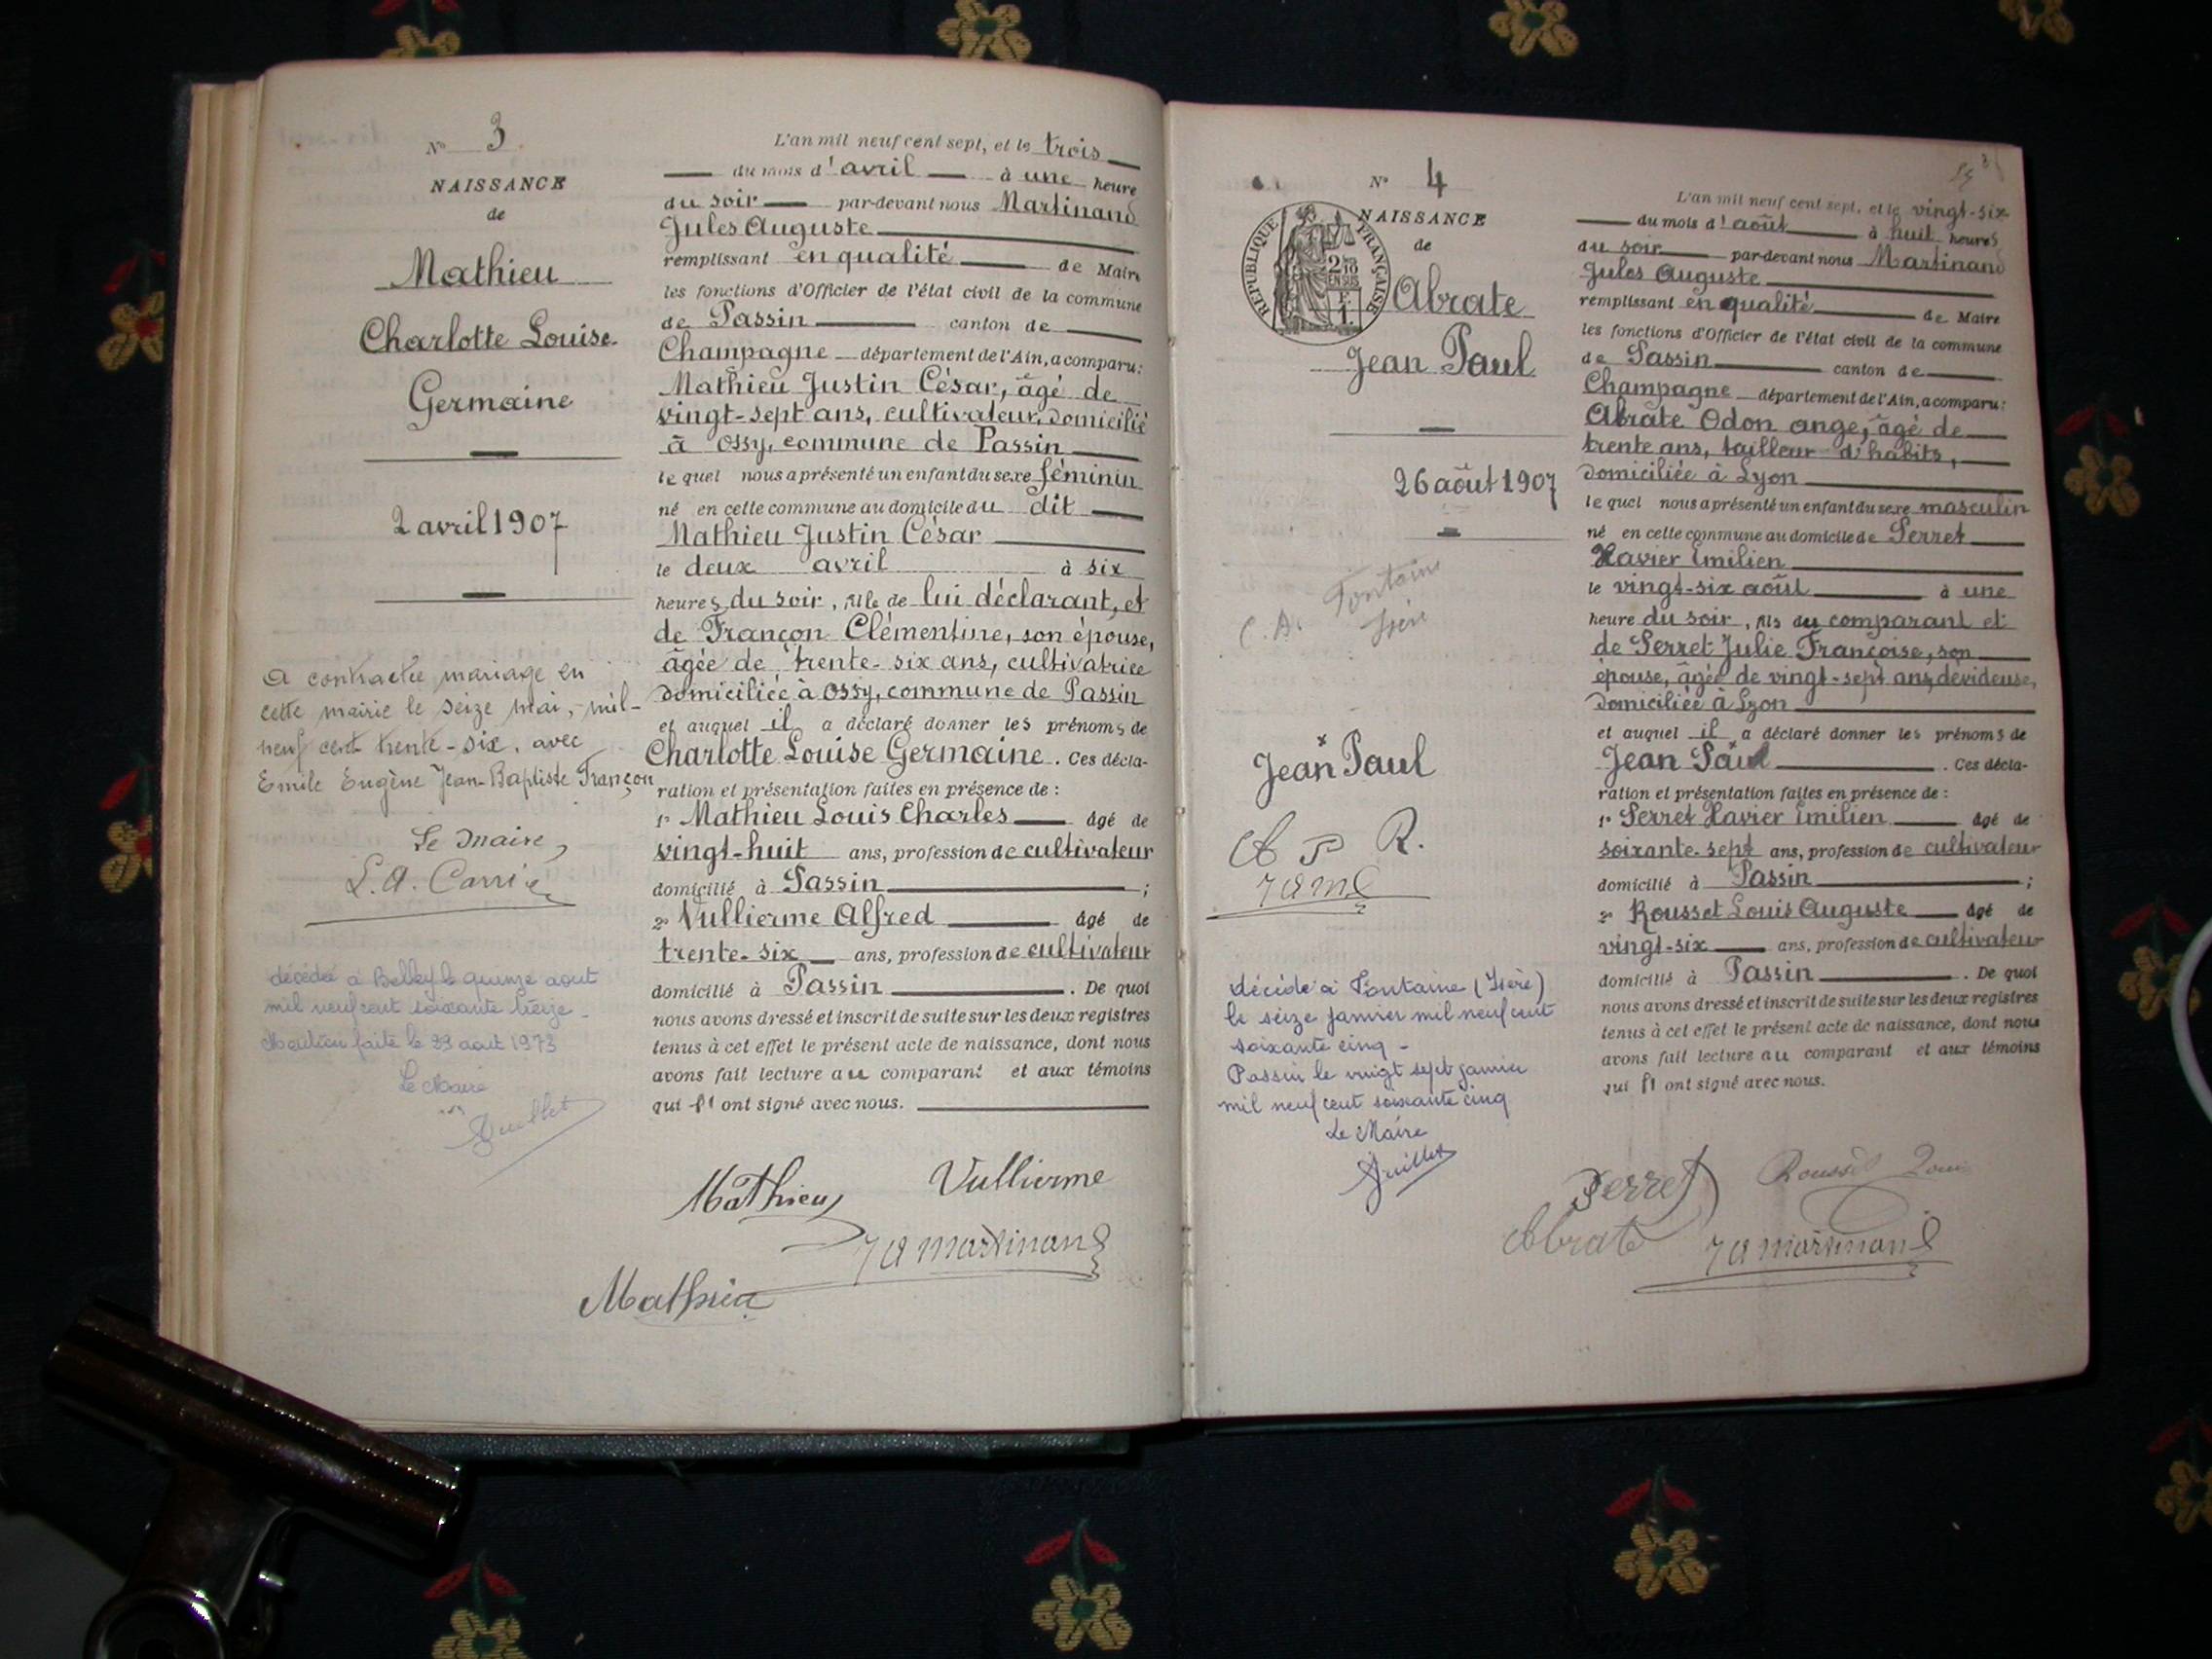 Nº 3
NAISSANCE
de
Mathieu
Charlotte Louise
Germaine
2 avril 1907
A contractée mariage en
cette mairie le seize mai, mil-
neuf cent trente-six, avec
Emile Eugène Jean-Baptiste Françon
Le Maire,
L. A. Carrié
décédée à Belley le quinze aout
mil neuf cent soixante treize -
Mention faite le 29 aout 1973
Le Maire
Juillet
L'an mil neuf cent sept, et le trois
du mois d'avril à une heure
du soir par-devant nous Martinand
Jules Auguste
remplissant en qualité de Maire
les fonctions d'Officier de l'état civil de la commune
de Passin canton de
Champagne département de l'Ain, a comparu:
Mathieu Justin César, âgé de
vingt-sept ans, cultivateur, domicilié
à Ossy, commune de Passin
le quel nous a présenté un enfant du sexe féminin
né en cette commune au domicile du dit
Mathieu Justin César
le deux avril à six
heures du soir, fille de lui déclarant, et
de Françon Clémentine, son épouse,
âgée de trente-six ans, cultivatrice
domiciliée à Ossy, commune de Passin
et auquel il a déclaré donner les prénoms de
Charlotte Louise Germaine. Ces décla-
ration et présentation faites en présence de:
1º Mathieu Louis Charles âgé de
vingt-huit ans, profession de cultivateur
domicilié à Passin ;
2º Vullierme Alfred âgé de
trente-six ans, profession de cultivateur
domicilié à Passin. De quoi
nous avons dressé et inscrit de suite sur les deux registres
tenus à cet effet le présent acte de naissance, dont nous
avons fait lecture au comparant et aux témoins
qui l'ont signé avec nous.
Mathieu Vullierme
J A Martinand
Mathieu
Nº 4
NAISSANCE
de
RÉPUBLIQUE FRANÇAISE
2/10
EN SUS
Abrate
Jean Paul
26 août 1907
Fontaine
Isère
Jean Paul
A P R.
J A M
décédé à Fontaine (Isère)
le seize janvier mil neuf cent
soixante cinq -
Passin le vingt sept janvier
mil neuf cent soixante cinq
Le Maire
Juillet
L'an mil neuf cent sept, et le vingt-six
du mois d'août à huit heures
du soir par-devant nous Martinand
Jules Auguste
remplissant en qualité de Maire
les fonctions d'Officier de l'état civil de la commune
de Passin canton de
Champagne département de l'Ain, a comparu:
Abrate Odon ange, âgé de
trente ans, tailleur d'habits,
domiciliée à Lyon
le quel nous a présenté un enfant du sexe masculin
né en cette commune au domicile de Perret
Xavier Emilien
le vingt-six août à une
heure du soir, fils du comparant et
de Perret Julie Françoise, son
épouse, âgée de vingt-sept ans, dévideuse,
domiciliée à Lyon
et auquel il a déclaré donner les prénoms de
Jean Paul. Ces décla-
ration et présentation faites en présence de:
1º Perret Xavier Emilien âgé de
soixante-sept ans, profession de cultivateur
domicilié à Passin ;
2º Rousset Louis Auguste âgé de
vingt-six ans, profession de cultivateur
domicilié à Passin. De quoi
nous avons dressé et inscrit de suite sur les deux registres
tenus à cet effet le présent acte de naissance, dont nous
avons fait lecture au comparant et aux témoins
qui l'ont signé avec nous.
Perret Rousset Louis
Abrate J A Martinand